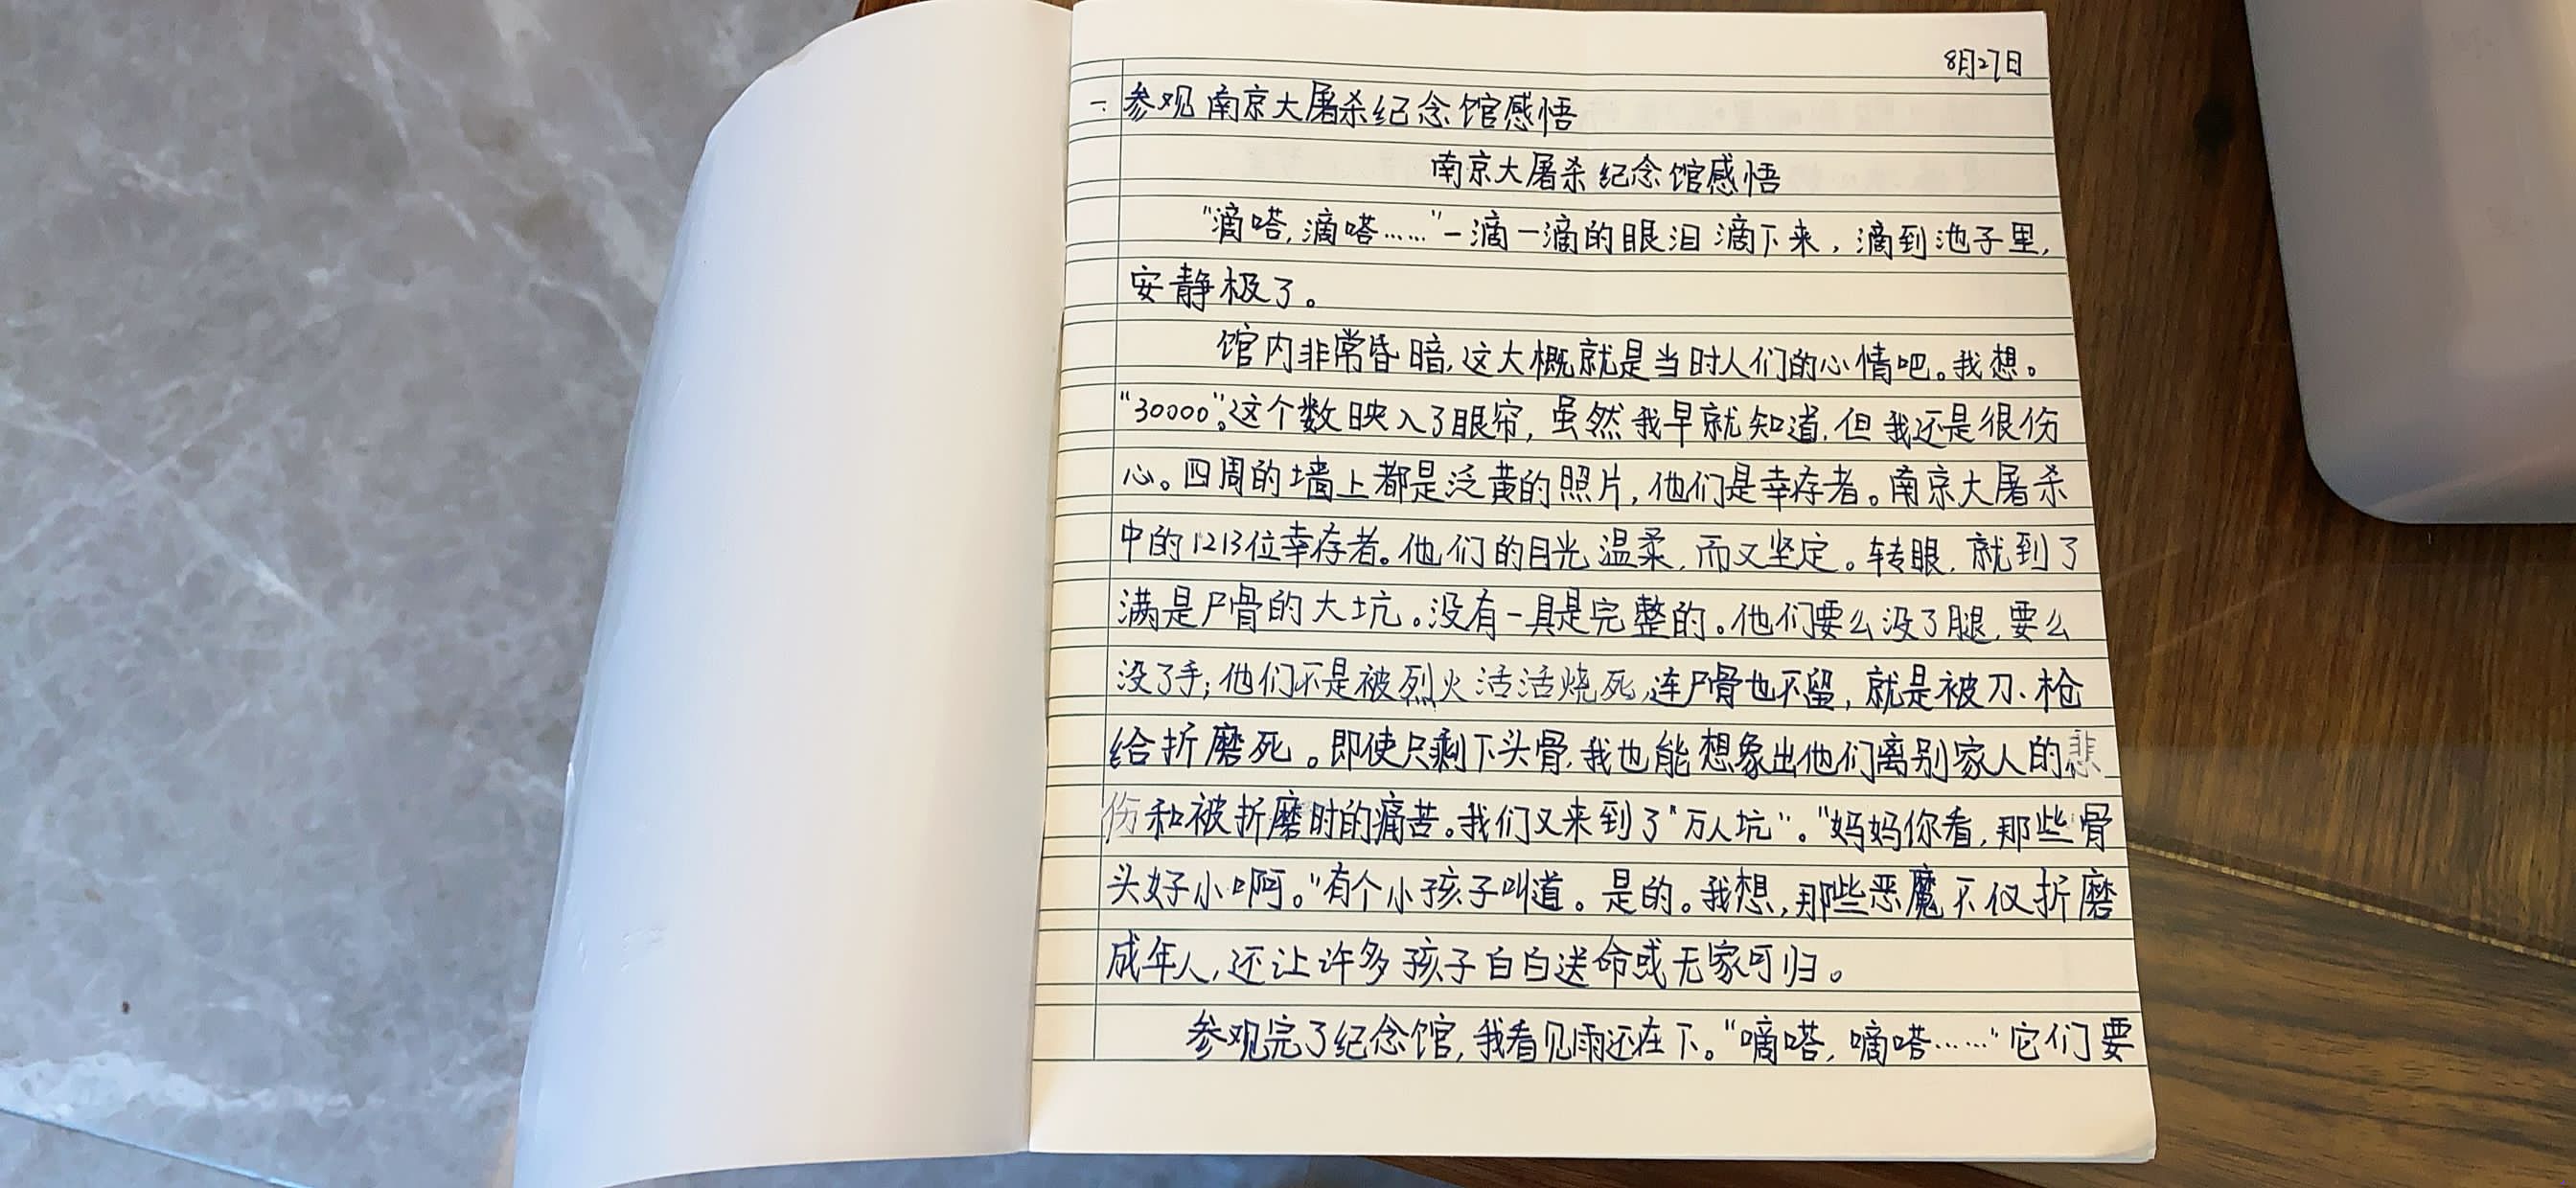 8月27日
一. 参观南京大屠杀纪念馆感悟
南京大屠杀纪念馆感悟
"滴嗒,滴嗒……"一滴一滴的眼泪滴下来,滴到池子里,
安静极了。
馆内非常昏暗,这大概就是当时人们的心情吧。我想。
"30000"。这个数映入了眼帘,虽然我早就知道,但我还是很伤
心。四周的墙上都是泛黄的照片,他们是幸存者。南京大屠杀
中的1213位幸存者。他们的目光温柔,而又坚定。转眼,就到了
满是尸骨的大坑。没有一具是完整的。他们要么没了腿,要么
没了手;他们不是被烈火活活烧死,连尸骨也不留,就是被刀、枪
给折磨死。即使只剩下头骨,我也能想象出他们离别家人的悲
伤和被折磨时的痛苦。我们又来到了"万人坑"。"妈妈你看,那些骨
头好小啊。"有个小孩子叫道。是的。我想,那些恶魔不仅折磨
成年人,还让许多孩子白白送命或无家可归。
参观完了纪念馆,我看见雨还在下。"嘀嗒,嘀嗒……"它们要